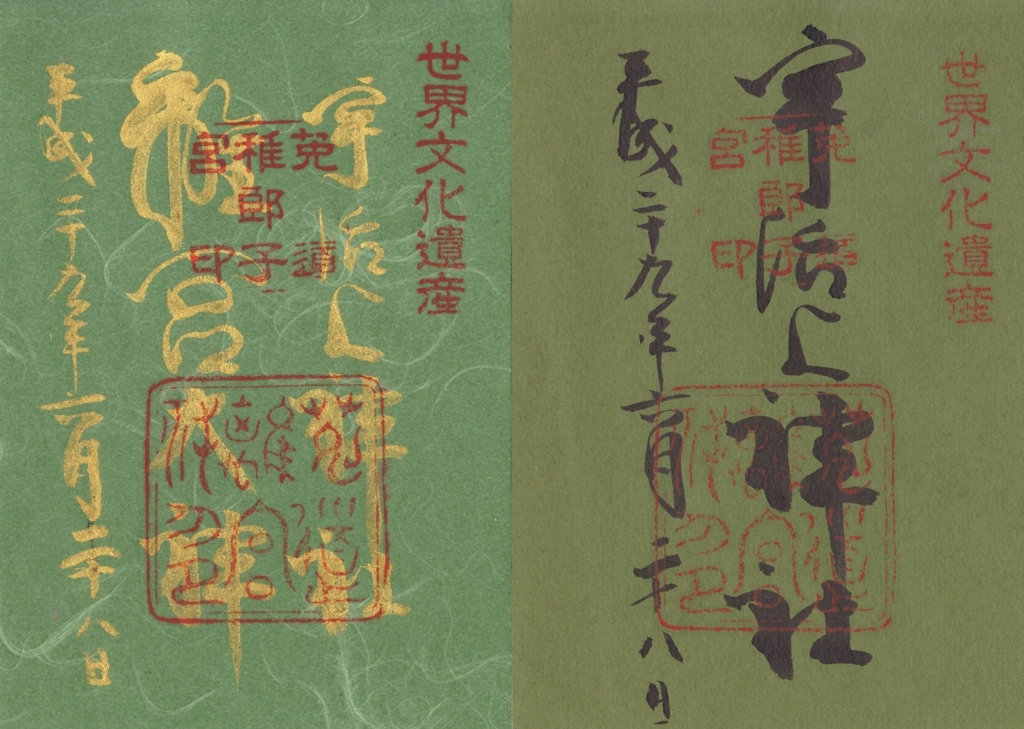 世界文化遺産
宇治上神社
菟道
稚郎子
宮印
平成二十九年六月二十八日
世界文化遺産
宇治上神社
菟道
稚郎子
宮印
離宮大神
平成二十九年六月二十八日